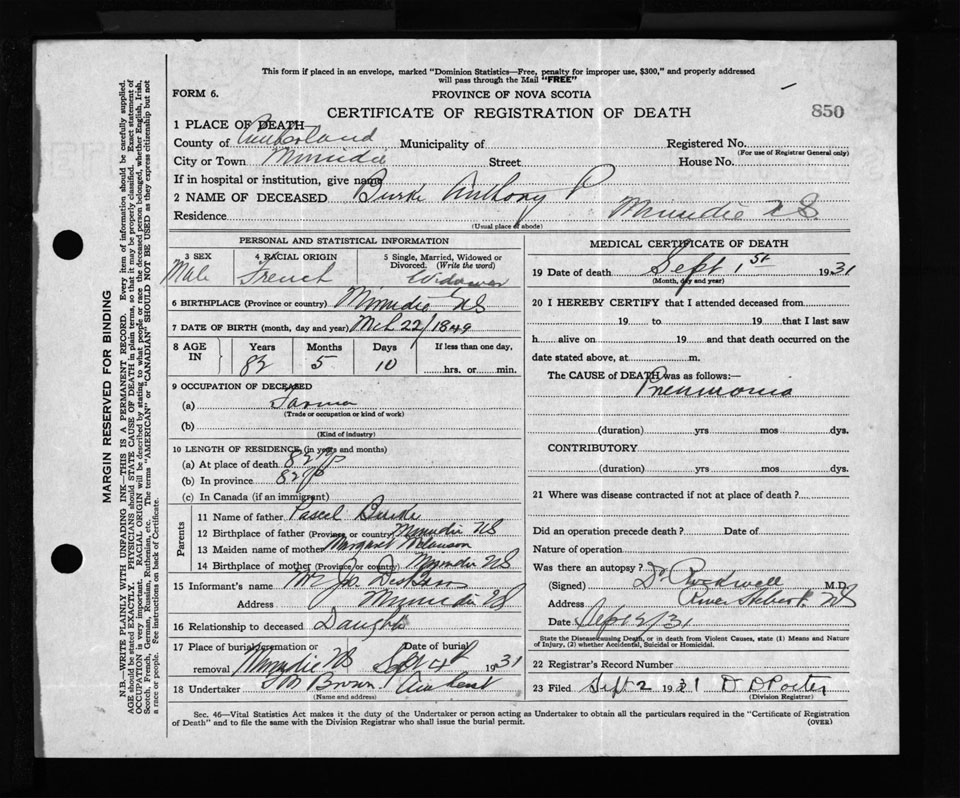 This form if placed in an envelope, marked "Dominion Statistics—Free, penalty for improper use, $300," and properly addressed
will pass through the Mail "FREE"
FORM 6.
PROVINCE OF NOVA SCOTIA
CERTIFICATE OF REGISTRATION OF DEATH
850
1 PLACE OF DEATH
County of Cumberland Municipality of Registered No.
(For use of Registrar General only)
City or Town Minudie Street House No.
If in hospital or institution, give name
2 NAME OF DECEASED Burke Anthony P
Residence Minudie NS
(Usual place of abode)
PERSONAL AND STATISTICAL INFORMATION
3 SEX 4 RACIAL ORIGIN 5 Single, Married, Widowed or Divorced. (Write the word)
Male French Widower
6 BIRTHPLACE (Province or country) Minudie NS
7 DATE OF BIRTH (month, day and year) Mch 22/1849
8 AGE IN Years Months Days If less than one day,
82 5 10 hrs. or min.
9 OCCUPATION OF DECEASED
(a) Farmer
(Trade or occupation or kind of work)
(b)
(Kind of industry)
10 LENGTH OF RESIDENCE (in years and months)
(a) At place of death 82
(b) In province 82
(c) In Canada (if an immigrant)
Parents
11 Name of father Pascel Burke
12 Birthplace of father (Province or country) Minudie NS
13 Maiden name of mother Margaret
14 Birthplace of mother (Province or country) Minudie NS
15 Informant's name
Address Minudie NS
16 Relationship to deceased Daughter
17 Place of burial, cremation or removal Minudie NS Date of burial Sept 4th 1931
18 Undertaker Brown Amherst
(Name and address)
MEDICAL CERTIFICATE OF DEATH
19 Date of death Sept 1st 1931
(Month, day and year)
20 I HEREBY CERTIFY that I attended deceased from
19 to 19 that I last saw
h alive on 19 and that death occurred on the
date stated above, at m.
The CAUSE of DEATH was as follows:—
Pneumonia
(duration) yrs mos dys.
CONTRIBUTORY
(duration) yrs mos dys.
21 Where was disease contracted if not at place of death?
Did an operation precede death? Date of
Nature of operation
Was there an autopsy?
(Signed) Dr Rockwell M.D.
Address River Hebert NS
Date Sept 2/31
State the Disease causing Death, or in death from Violent Causes, state (1) Means and Nature
of Injury, (2) whether Accidental, Suicidal or Homicidal.
22 Registrar's Record Number
23 Filed Sept 2 1931 D D Porter
(Division Registrar)
Sec. 46—Vital Statistics Act makes it the duty of the Undertaker or person acting as Undertaker to obtain all the particulars required in the "Certificate of Registration
of Death" and to file the same with the Division Registrar who shall issue the burial permit. (OVER)
MARGIN RESERVED FOR BINDING
N.B.—WRITE PLAINLY WITH UNFADING INK—THIS IS A PERMANENT RECORD. Every item of information should be carefully supplied.
AGE should be stated EXACTLY. PHYSICIANS should STATE CAUSE OF DEATH in plain terms, so that it may be properly classified. Exact statement of
OCCUPATION is very important. RACIAL ORIGIN will be described by stating to what people or race the deceased person belonged, whether English, Irish,
Scotch, French, German, Russian, Ruthenian, etc. The terms "AMERICAN" or "CANADIAN" SHOULD NOT BE USED as they express citizenship but not
a race or people. See instructions on back of Certificate.